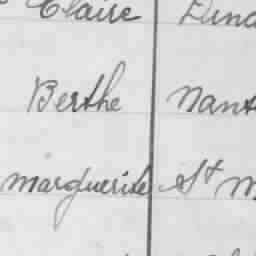 Claire
Berthe Nant
marguerite St m